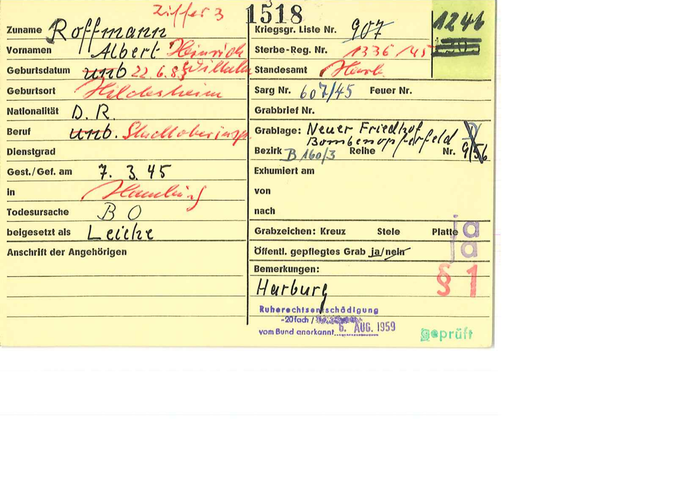 Ziffer 3
1518
1246
Zuname Roffmann
Vornamen Albert Heinrich
Geburtsdatum unb 22.6.83 Wilhelm
Geburtsort Hildesheim
Nationalität D.R.
Beruf unb. Stadtoberinsp.
Dienstgrad
Gest./Gef. am 7. 3. 45
in Hamburg
Todesursache B O
beigesetzt als Leiche
Anschrift der Angehörigen
Kriegsgr. Liste Nr. 907
Sterbe-Reg. Nr. 1336/45
Standesamt Harb.
Sarg Nr. 607/45 Feuer Nr.
Grabbrief Nr.
Grablage: Neuer Friedhof
Bombenopferfeld
Bezirk B 160/3 Reihe Nr. 9/56
Exhumiert am
von
nach
Grabzeichen: Kreuz Stele Platte ja
Öffentl. gepflegtes Grab ja/nein ja
Bemerkungen: § 1
Harburg
Ruherechtsentschädigung
-20fach /
vom Bund anerkannt 6. AUG. 1959
geprüft